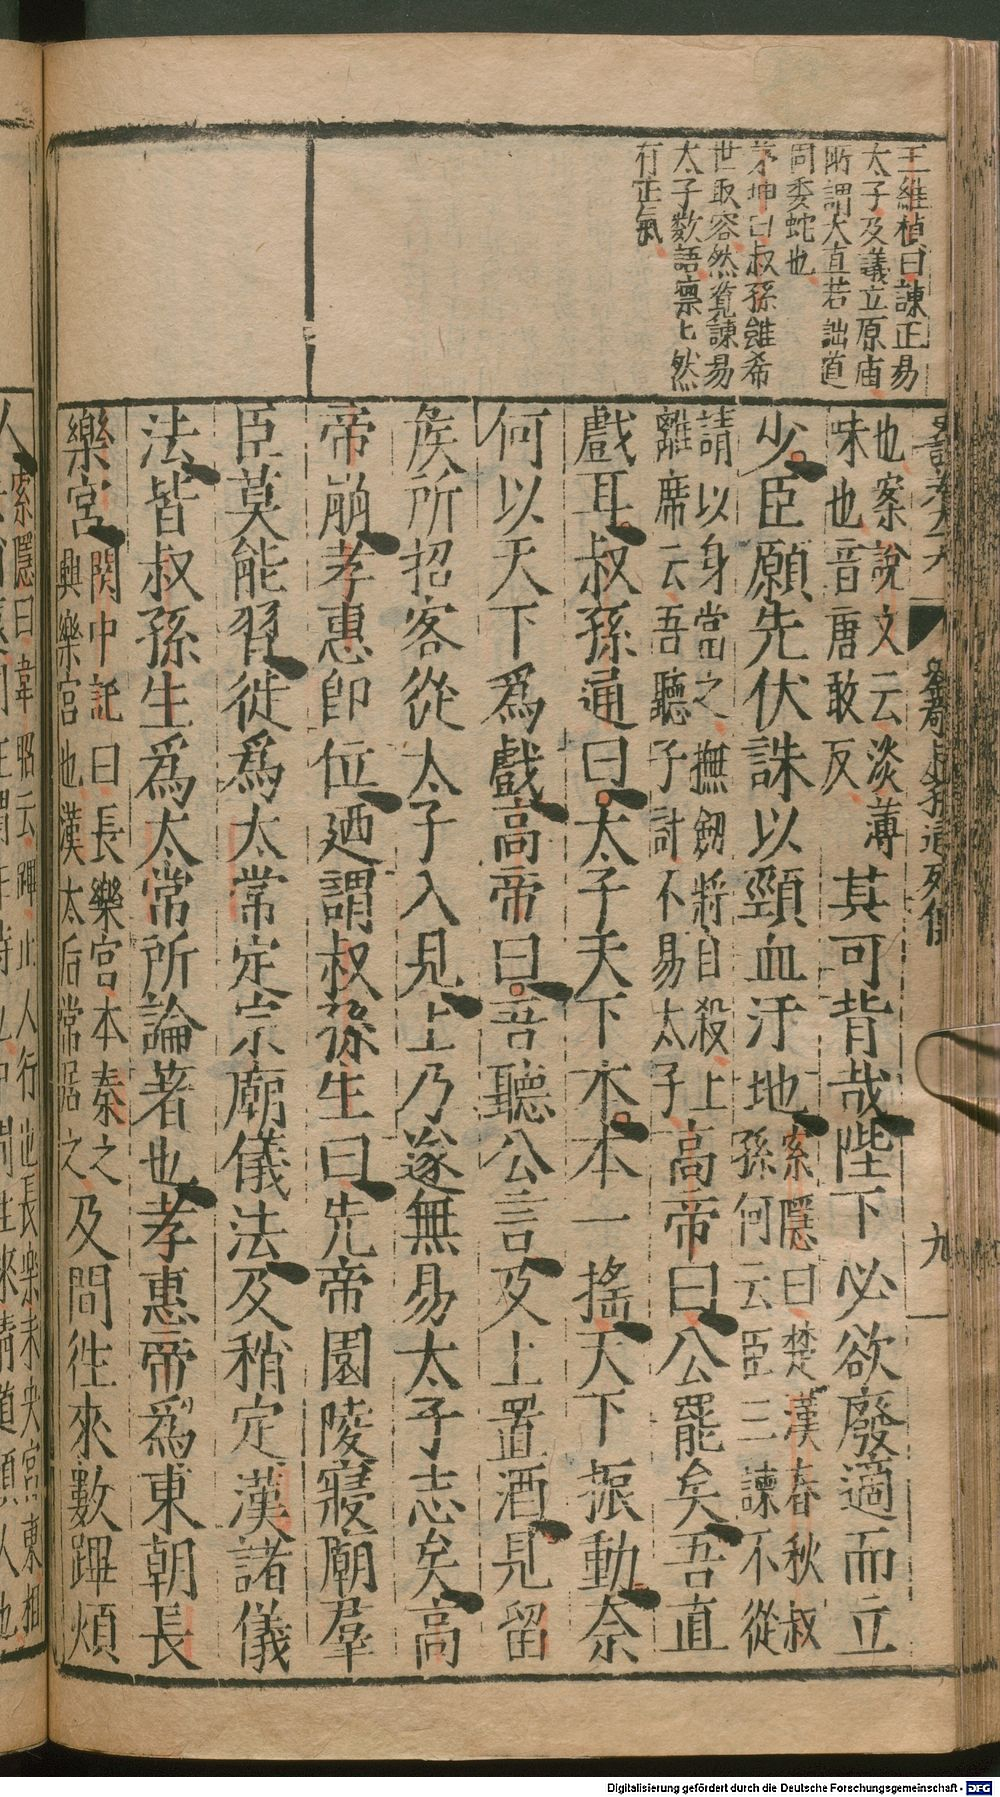 王維楨曰諫正易
太子及議立原庙
所謂大直若詘道
固委蛇也
茅坤曰叔孫雖希
世取容然覽諫易
太子数語凛匕然
有正氣
劉敬叔孫通列傳
九
也案說文云淡薄
味也音唐敢反
其可背哉陛下必欲廢適而立
少臣願先伏誅以頸血汙地
索隱曰楚漢春秋叔
孫何云臣三諫不從
請以身當之撫劒將自殺上
離席云吾聽子計不易太子
高帝曰公罷矣吾直
戲耳叔孫通曰太子天下本本一搖天下振動奈
何以天下爲戲高帝曰吾聽公言及上置酒見留
矦所招客從太子入見上乃遂無易太子志矣高
帝崩孝惠即位廼謂叔孫生曰先帝園陵寢廟羣
臣莫能習徙爲太常定宗廟儀法及稍定漢諸儀
法皆叔孫生爲太常所論著也孝惠帝爲東朝長
樂宮
関中記曰長樂宮本秦之
興樂宮也漢太后常居之
及間徃來數蹕煩
索隱曰韋昭云蹕止人行也長樂未央宮東相
Digitalisierung gefördert durch die Deutsche Forschungsgemeinschaft - DFG